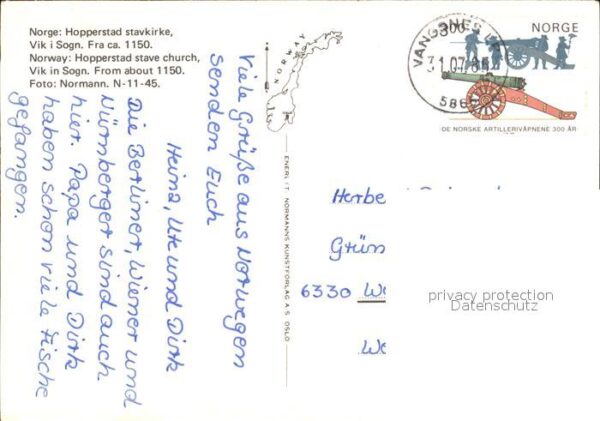 Norge: Hopperstad stavkirke,
Vik i Sogn. Fra ca. 1150.
Norway: Hopperstad stave church,
Vik in Sogn. From about 1150.
Foto: Normann. N-11-45.
Viele Grüße aus Norwegen
senden Euch
Heinz, Ute und Dirk
Die Berliner, Wiener und
Nürnberger sind auch
hier. Papa und Dirk
haben schon viele Fische
gefangen.
NORWAY
ENERETT NORMANNS KUNSTFORLAG A.S. OSLO
VANGSNES
31.07.85
586
300
NORGE
DE NORSKE ARTILLERIVÅPNENE 300 ÅR
Herbe
Grün
6330 We
We
privacy protection
Datenschutz